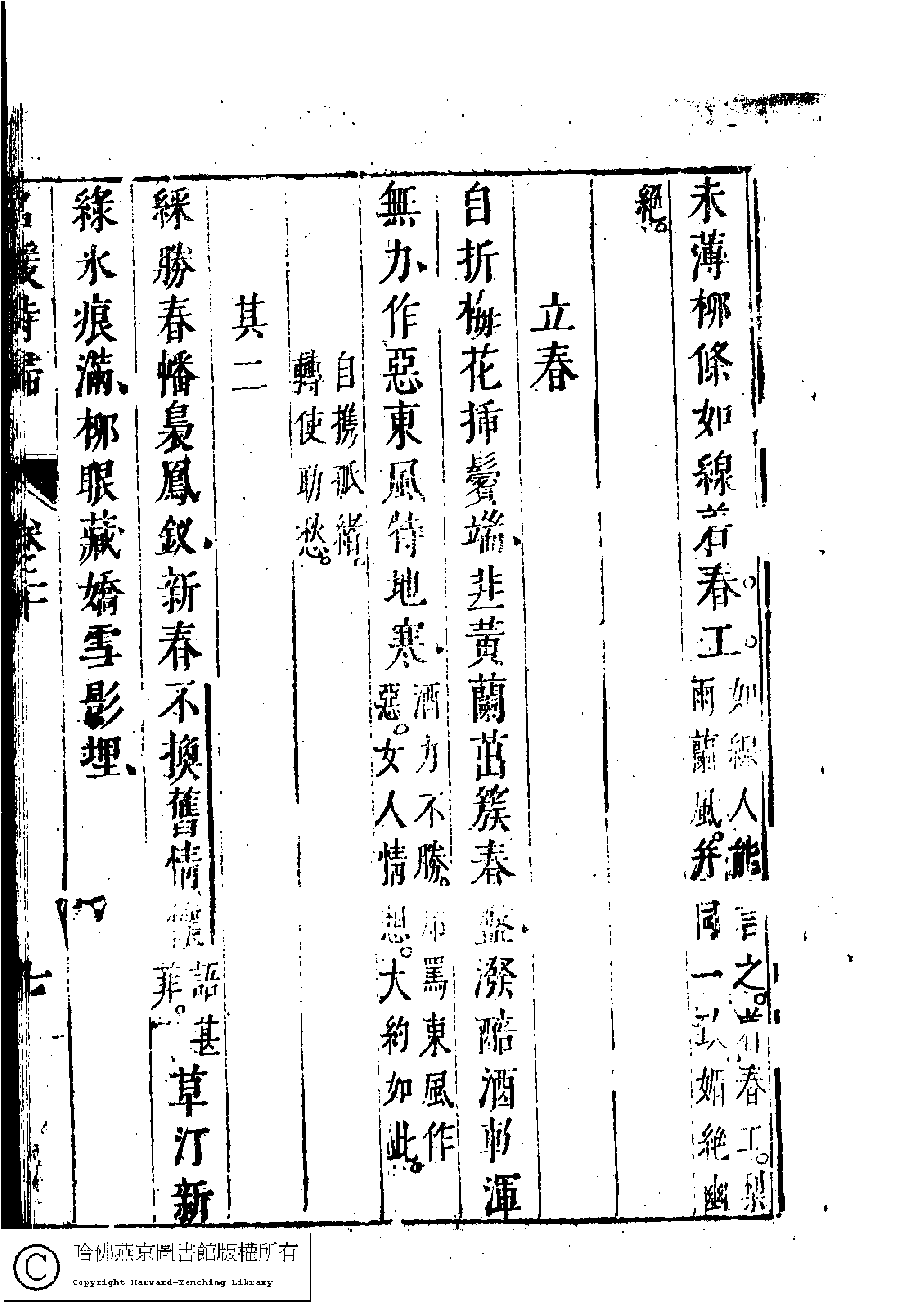 未薄柳條如線着春工如線人能言之着春工梨
雨蘭風幷同一妬絶幽
絕
立春
自折梅花揷鬢端韭黃蘭茁簇春盤潑醅酒軟渾
無力作惡東風特地寒酒力不勝罵東風作
惡女人情思大約如此
自携孤緒
轉使助愁
其二
綵勝春幡裊鳳釵新春不換舊情懷語甚
菲草汀新
綠水痕滿柳眼藏嬌雪影埋
名媛詩歸
卷之二十
七
哈佛燕京圖書館版權所有
Copyright Harvard-Yenching Library